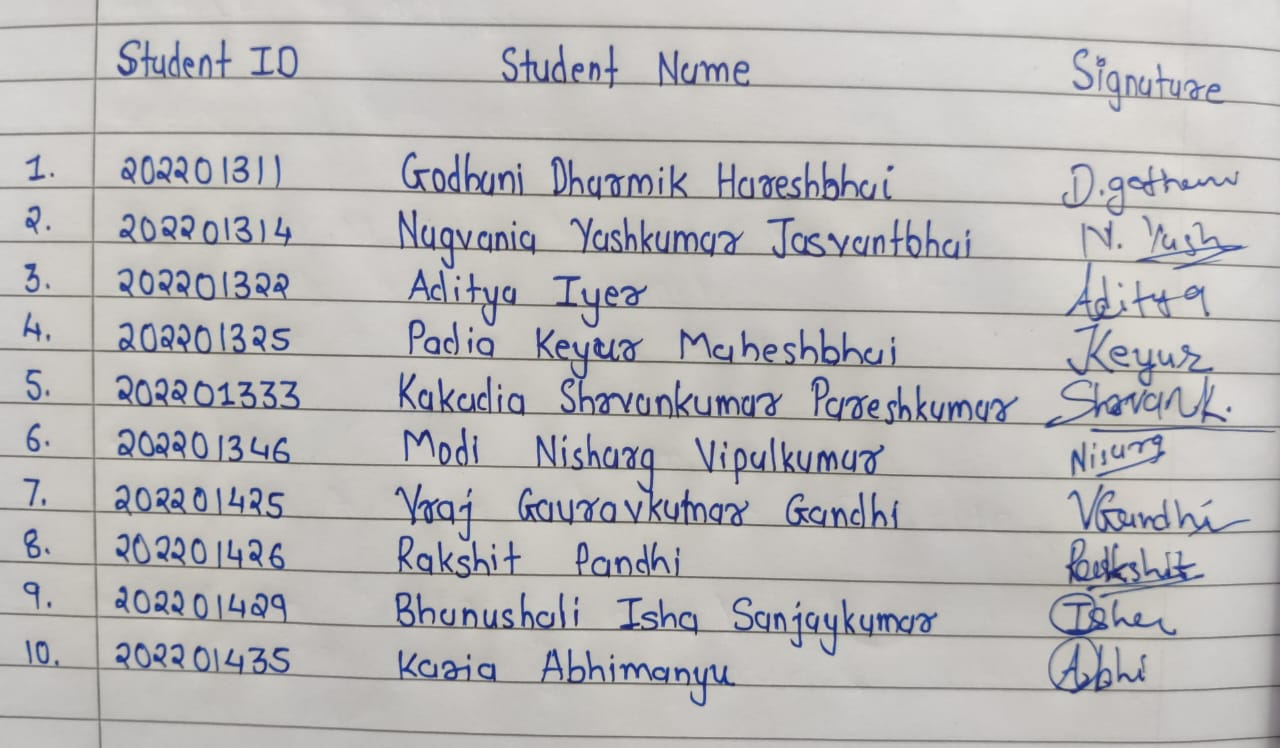 Student ID Student Name Signature
1. 202201311 Godhani Dharmik Hareshbhai
2. 202201314 Nagvania Yashkumar Jasvantbhai N. Yash
3. 202201322 Aditya Iyer Aditya
4. 202201325 Padia Keyur Maheshbhai Keyur
5. 202201333 Kakadia Shravankumar Pareshkumar Shravan k.
6. 202201346 Modi Nisharg Vipulkumar Nisarg
7. 202201425 Vraj Gauravkumar Gandhi VGandhi
8. 202201426 Rakshit Pandhi Rakshit
9. 202201429 Bhanushali Isha Sanjaykumar Isha
10. 202201435 Karia Abhimanyu Abhi